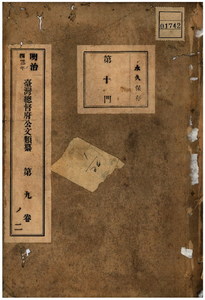 01742
永久保存
第十門
明治
臺灣總督府公文類纂
第九卷
二